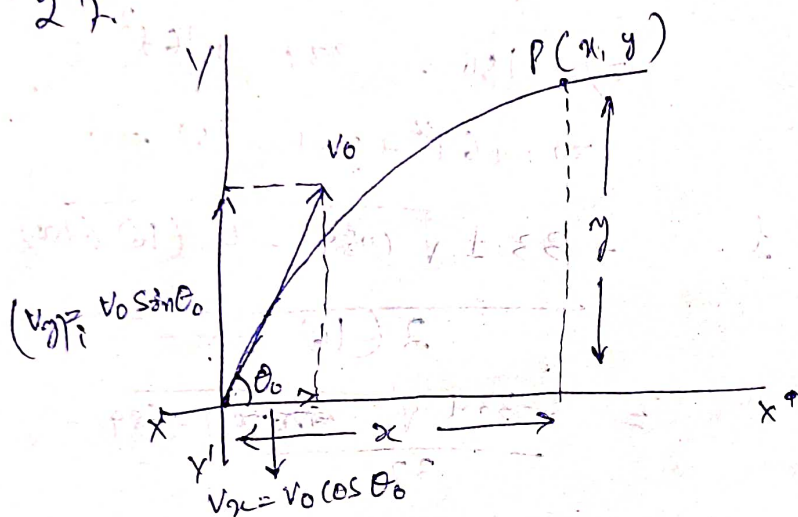 27.
Y
P(x, y)
v0
y
(vy)i = v0 sinθ0
θ0
X'
x
X
Y'
vx = v0 cosθ0